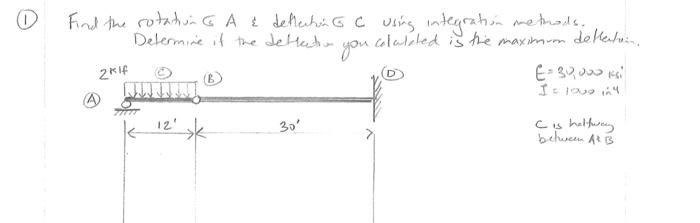 ① Find the rotation @ A & deflection @ C using integration methods.
Determine if the deflection you calculated is the maximum deflection.
2 Klf
C
B
D
A
E = 30,000 ksi
I = 1000 in⁴
12'
30'
C is halfway
between A & B